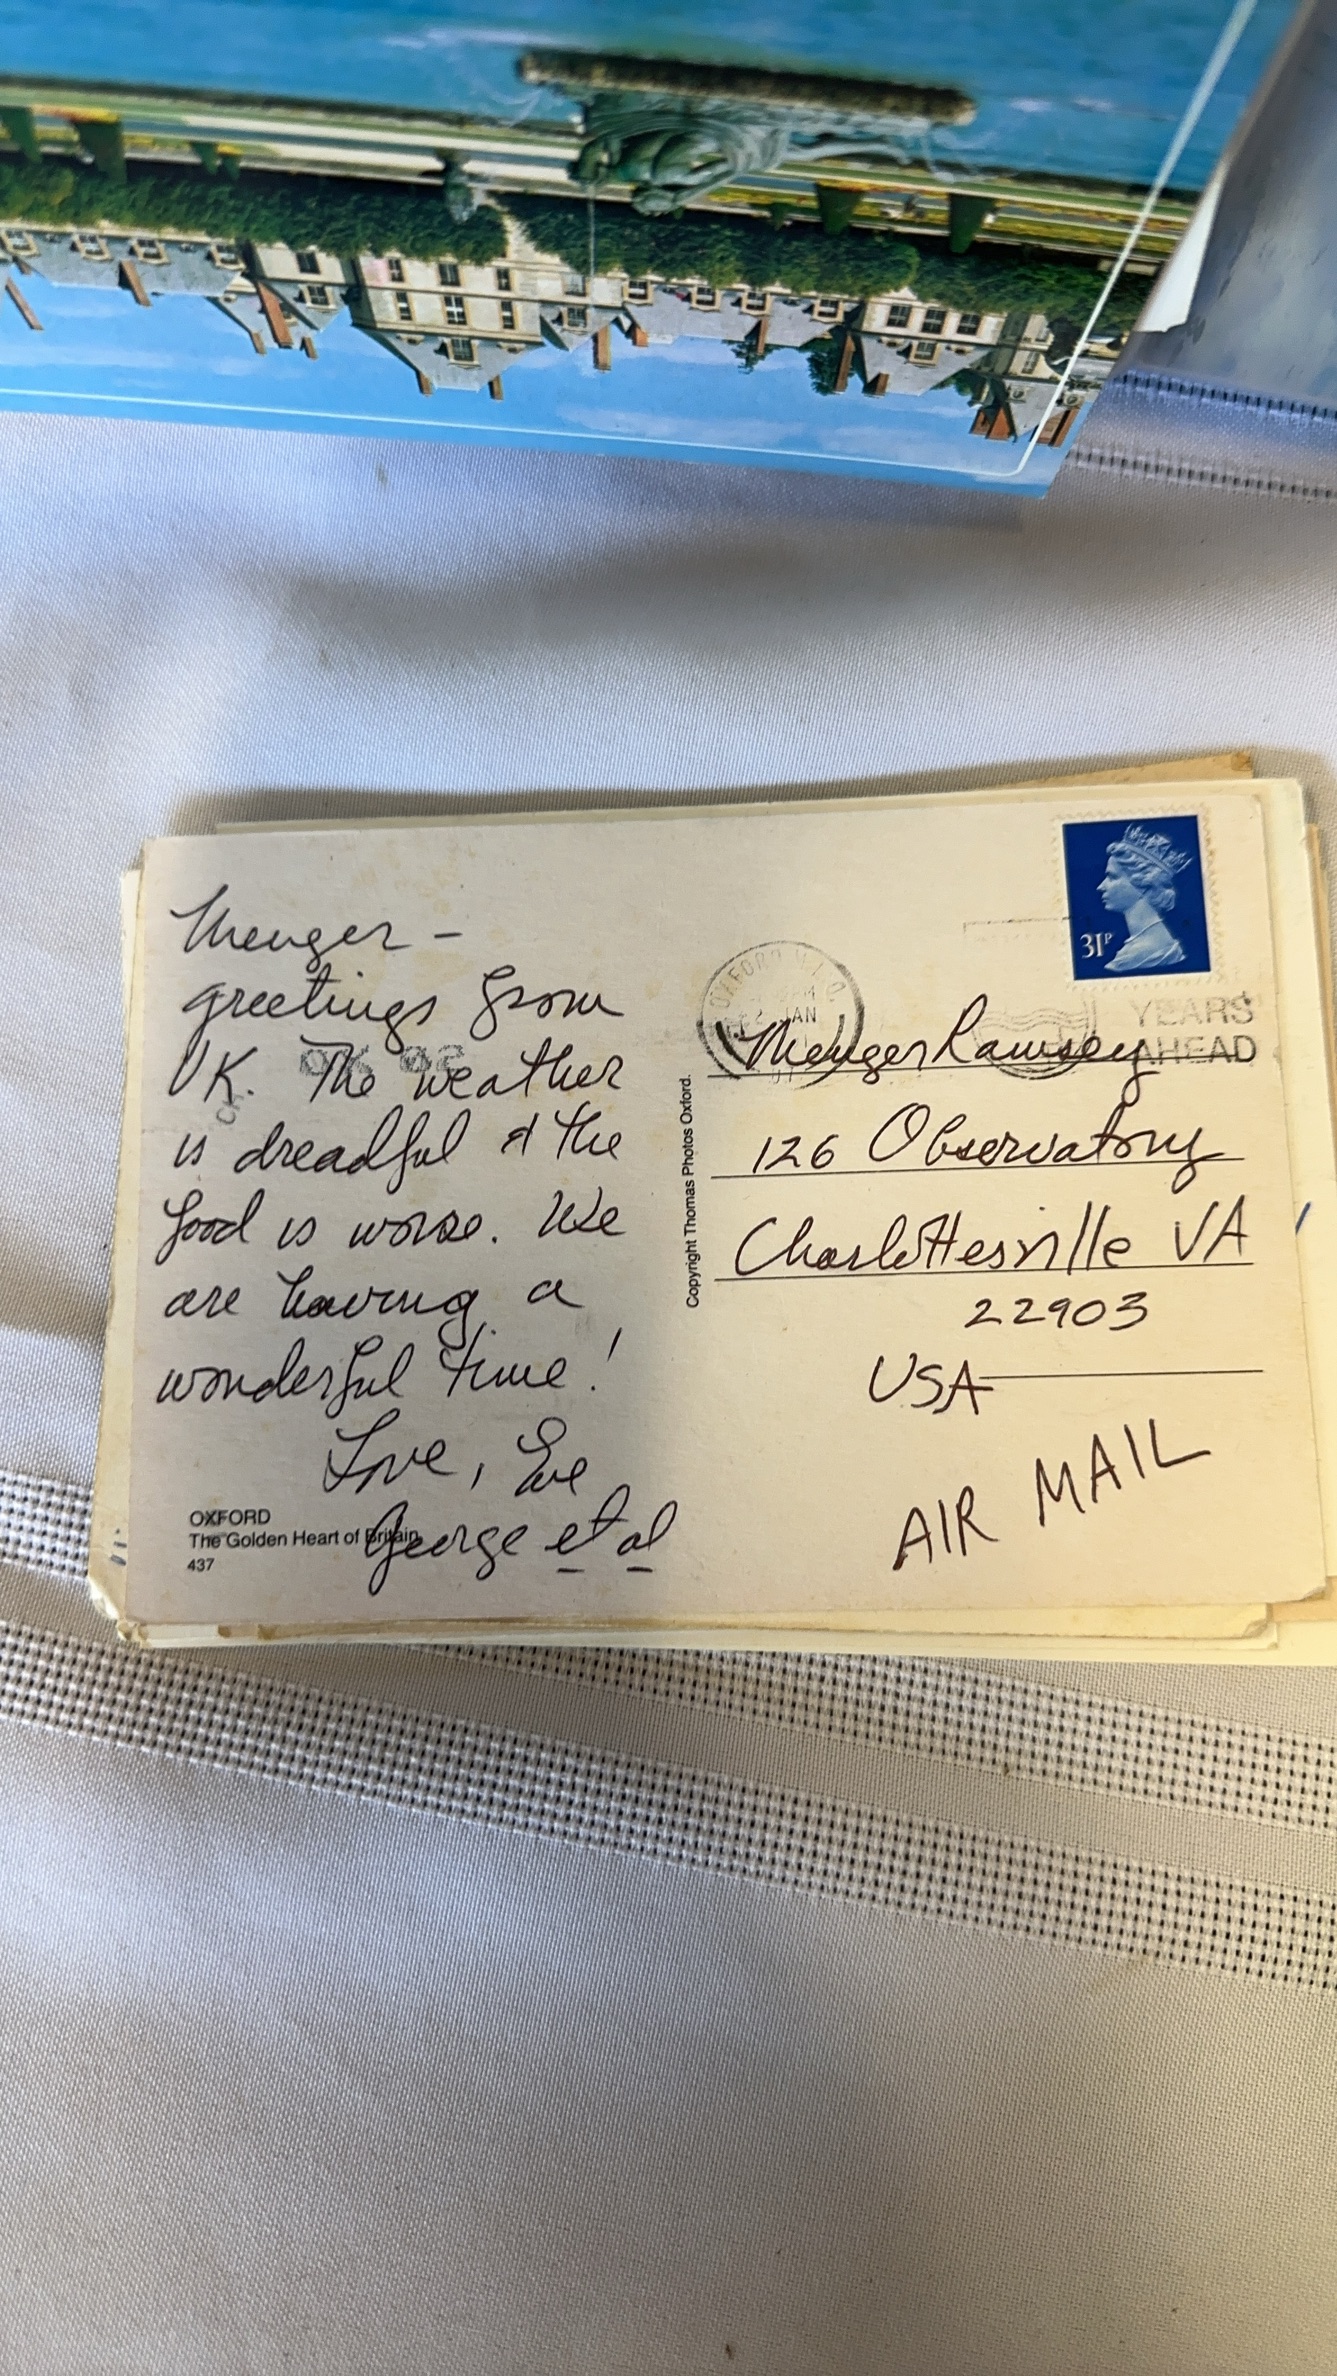 Menger –
greetings from
UK. The weather
is dreadful & the
food is worse. We
are having a
wonderful time!
Love, Eve
George et al
OXFORD
The Golden Heart of Britain
437
Copyright Thomas Photos Oxford.
31P
OXFORD
2 JAN
YEARS
AHEAD
Menger Ramsey
126 Observatory
Charlottesville VA
22903
USA
AIR MAIL